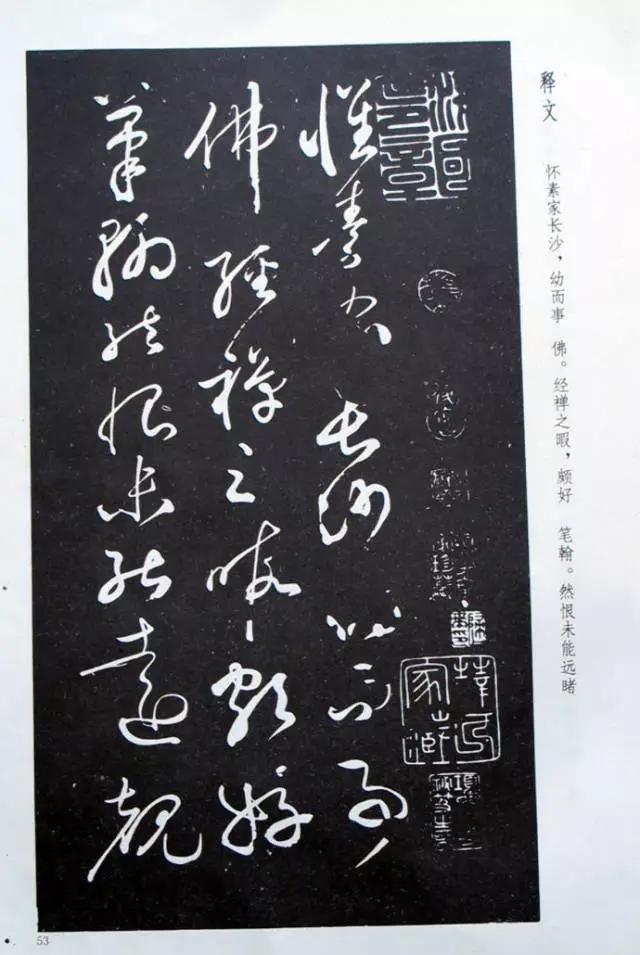 释文
怀素家长沙，幼而事　佛。经禅之暇，颇好　笔翰。然恨未能远睹
懷素家長沙幼而事
佛經禪之暇頗好
筆翰然恨未能遠覩
53